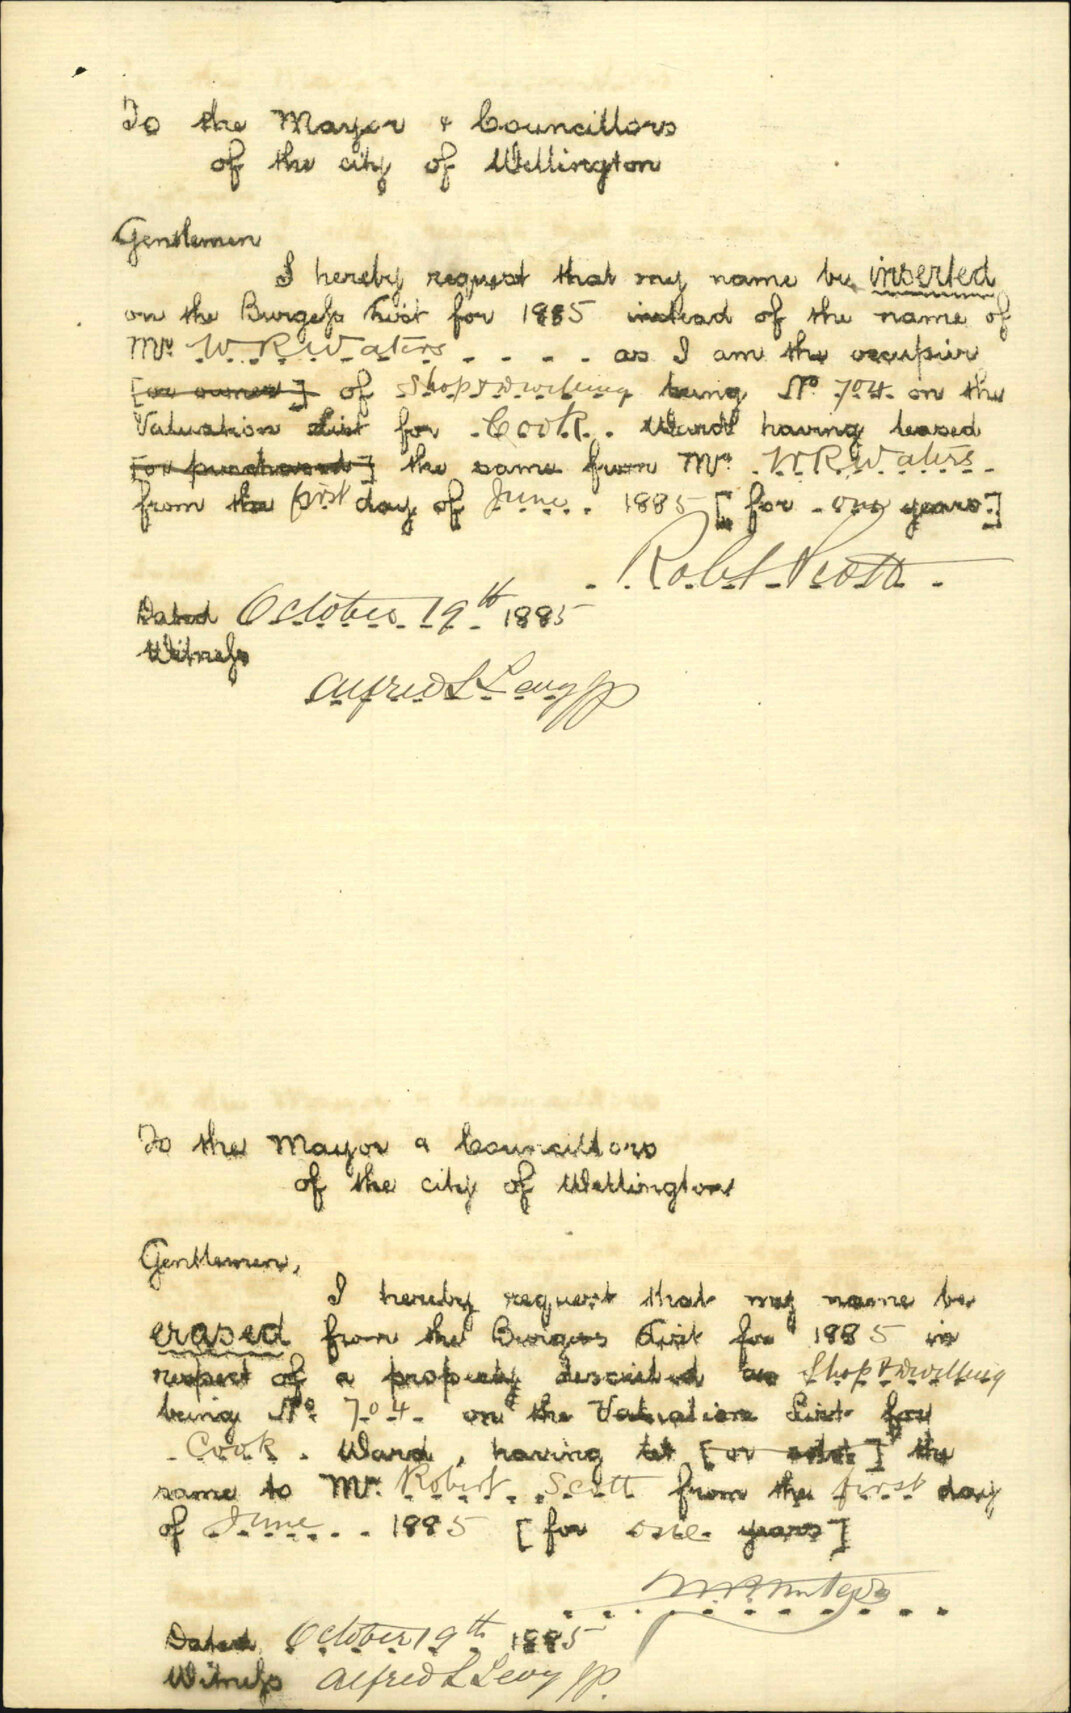 To the Mayor & Councillors
of the city of Wellington
Gentlemen
I hereby request that my name be inserted
on the Burgess List for 1885 instead of the name of
Mr. W R Waters as I am the occupier
[or owner] of Shop & Dwelling being No. 704 on the
Valuation List for Cook Ward having leased
[or purchased] the same from Mr. W R Waters
from the first day of June 1885 [for one years]
Robt Scott
Dated October 19th 1885
Witness
Alfred L Levy JP
To the Mayor & Councillors
of the city of Wellington
Gentlemen,
I hereby request that my name be
erased from the Burgess List for 1885 in
respect of a property described as Shop & Dwelling
being No. 704 on the Valuation List for
Cook Ward, having let [or sold] the
same to Mr. Robert Scott from the first day
of June 1885 [for one years]
W R Waters
Dated October 19th 1885
Witness Alfred L Levy JP.